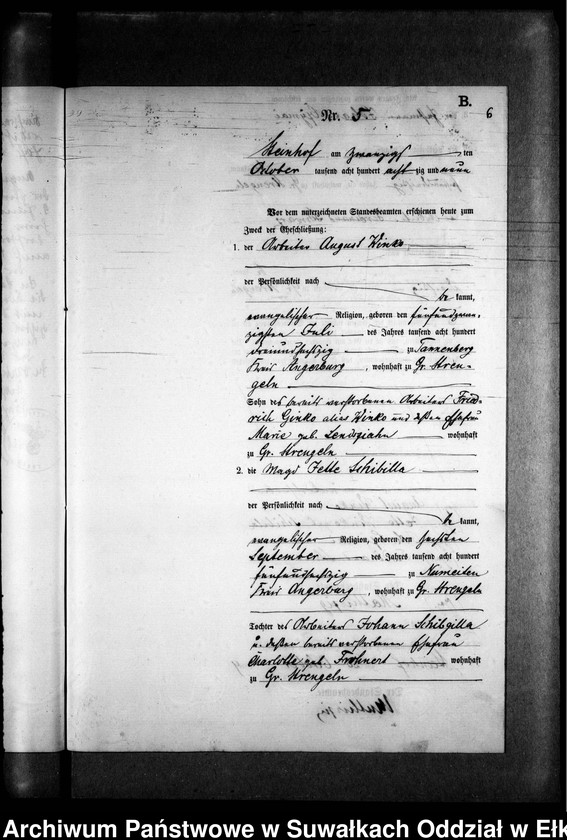 B.
6
Nr. 5
Steinhof am zwanzigsten
October tausend acht hundert achtzig und neun
Vor dem unterzeichneten Standesbeamten erschienen heute zum
Zweck der Eheschließung:
1. der Arbeiter August Winko
der Persönlichkeit nach
bekannt,
evangelischer Religion, geboren den fünfundzwan-
zigsten Juli des Jahres tausend acht hundert
dreiundsechszig zu Tannenberg
Kreis Angerburg, wohnhaft zu Gr. Stren-
geln
Sohn des bereits verstorbenen Arbeiters Fried-
rich Ginko alias Winko und dessen Ehefrau
Marie geb. wohnhaft
zu Gr. Strengeln
2. die Magd Jette Schibilla
der Persönlichkeit nach
bekannt,
evangelischer Religion, geboren den sechsten
September des Jahres tausend acht hundert
fünfundsechszig zu Numeiten
Kreis Angerburg, wohnhaft zu Gr. Strengeln
Tochter des Arbeiters Johann Schibgilla
u. dessen bereits verstorbenen Ehefrau
Charlotte geb. Frohnert wohnhaft
zu Gr. Strengeln
Archiwum Państwowe w Suwałkach Oddział w Ełk